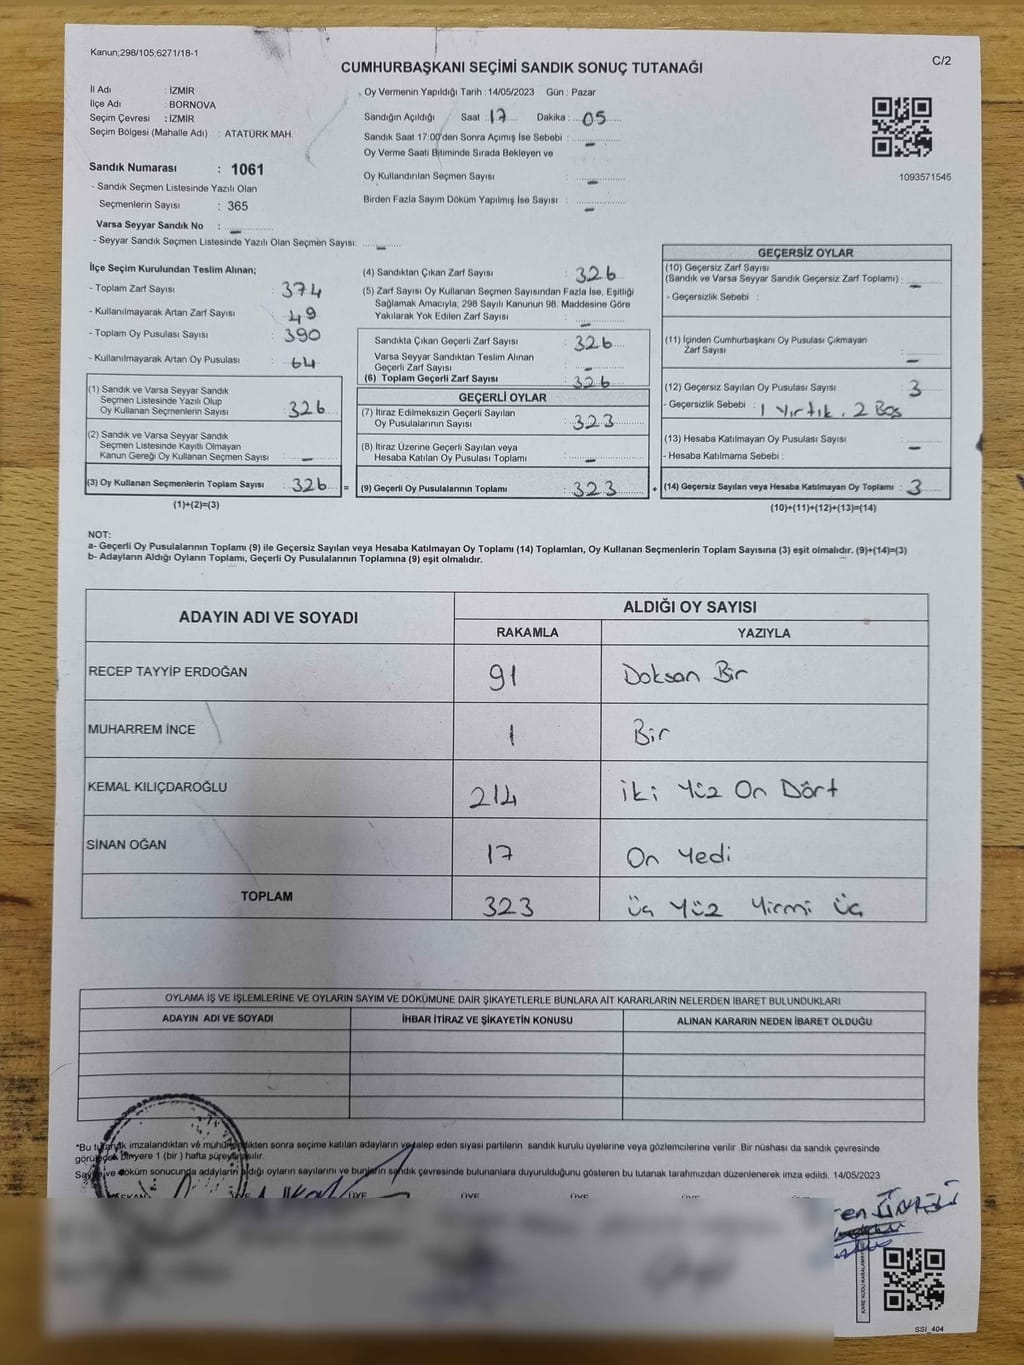 Kanun,298/105;6271/18-1
C/2
CUMHURBAŞKANI SEÇİMİ SANDIK SONUÇ TUTANAĞI
İl Adı : İZMİR
İlçe Adı : BORNOVA
Seçim Çevresi : İZMİR
Seçim Bölgesi (Mahalle Adı) : ATATÜRK MAH.
Oy Vermenin Yapıldığı Tarih : 14/05/2023 Gün : Pazar
Sandığın Açıldığı Saat : 17 Dakika : 05
Sandık Saat 17:00'den Sonra Açımış İse Sebebi : -
Oy Verme Saati Bitiminde Sırada Bekleyen ve
Oy Kullandırılan Seçmen Sayısı : -
Birden Fazla Sayım Döküm Yapılmış İse Sayısı : -
1093571545
Sandık Numarası : 1061
- Sandık Seçmen Listesinde Yazılı Olan
Seçmenlerin Sayısı : 365
Varsa Seyyar Sandık No : -
- Seyyar Sandık Seçmen Listesinde Yazılı Olan Seçmen Sayısı: -
İlçe Seçim Kurulundan Teslim Alınan;
- Toplam Zarf Sayısı : 374
- Kullanılmayarak Artan Zarf Sayısı : 49
- Toplam Oy Pusulası Sayısı : 390
- Kullanılmayarak Artan Oy Pusulası : 64
(1) Sandık ve Varsa Seyyar Sandık
Seçmen Listesinde Yazılı Olup
Oy Kullanan Seçmenlerin Sayısı : 326
(2) Sandık ve Varsa Seyyar Sandık
Seçmen Listesinde Kayıtlı Olmayan
Kanun Gereği Oy Kullanan Seçmen Sayısı : -
(3) Oy Kullanan Seçmenlerin Toplam Sayısı : 326 =
(1)+(2)=(3)
(4) Sandıktan Çıkan Zarf Sayısı : 326
(5) Zarf Sayısı Oy Kullanan Seçmen Sayısından Fazla İse, Eşitliği
Sağlamak Amacıyla, 298 Sayılı Kanunun 98. Maddesine Göre
Yakılarak Yok Edilen Zarf Sayısı : -
Sandıkta Çıkan Geçerli Zarf Sayısı : 326
Varsa Seyyar Sandıktan Teslim Alınan
Geçerli Zarf Sayısı : -
(6) Toplam Geçerli Zarf Sayısı : 326
GEÇERLİ OYLAR
(7) İtiraz Edilmeksizin Geçerli Sayılan
Oy Pusulasının Sayısı : 323
(8) İtiraz Üzerine Geçerli Sayılan veya
Hesaba Katılan Oy Pusulası Toplamı : -
(9) Geçerli Oy Pusulalarının Toplamı : 323 +
GEÇERSİZ OYLAR
(10) Geçersiz Zarf Sayısı
(Sandık ve Varsa Seyyar Sandık Geçersiz Zarf Toplamı) : -
- Geçersizlik Sebebi :
(11) İçinden Cumhurbaşkanı Oy Pusulası Çıkmayan
Zarf Sayısı : -
(12) Geçersiz Sayılan Oy Pusulası Sayısı : 3
- Geçersizlik Sebebi : 1 Yırtık. 2 Boş
(13) Hesaba Katılmayan Oy Pusulası Sayısı : -
- Hesaba Katılmama Sebebi :
(14) Geçersiz Sayılan veya Hesaba Katılmayan Oy Toplamı : 3
(10)+(11)+(12)+(13)=(14)
NOT:
a- Geçerli Oy Pusulalarının Toplamı (9) ile Geçersiz Sayılan veya Hesaba Katılmayan Oy Toplamı (14) Toplamları, Oy Kullanan Seçmenlerin Toplam Sayısına (3) eşit olmalıdır. (9)+(14)=(3)
b- Adayların Aldığı Oyların Toplamı, Geçerli Oy Pusulalarının Toplamına (9) eşit olmalıdır.
ADAYIN ADI VE SOYADI
ALDIĞI OY SAYISI
RAKAMLA YAZIYLA
RECEP TAYYİP ERDOĞAN 91 Doksan Bir
MUHARREM İNCE 1 Bir
KEMAL KILIÇDAROĞLU 214 iki Yüz On Dört
SİNAN OĞAN 17 On Yedi
TOPLAM 323 üç Yüz Yirmi Üç
OYLAMA İŞ VE İŞLEMLERİNE VE OYLARIN SAYIM VE DÖKÜMÜNE DAİR ŞİKAYETLERLE BUNLARA AİT KARARLARIN NELERDEN İBARET BULUNDUKLARI
ADAYIN ADI VE SOYADI İHBAR İTİRAZ VE ŞİKAYETİN KONUSU ALINAN KARARIN NEDEN İBARET OLDUĞU
*Bu tutanak imzalandıktan ve mühürlendikten sonra seçime katılan adayların ve talep eden siyasi partilerin sandık kurulu üyelerine veya gözlemcilerine verilir. Bir nüshası da sandık çevresinde
görülecek bir yere 1 (bir) hafta süreyle asılır.
Sayım ve döküm sonucunda adayların aldığı oyların sayılarını ve bunların sandık çevresinde bulunanlara duyurulduğunu gösteren bu tutanak tarafımızdan düzenlenerek imza edildi. 14/05/2023
BAŞKAN ÜYE ÜYE ÜYE ÜYE ÜYE
SSİ_404